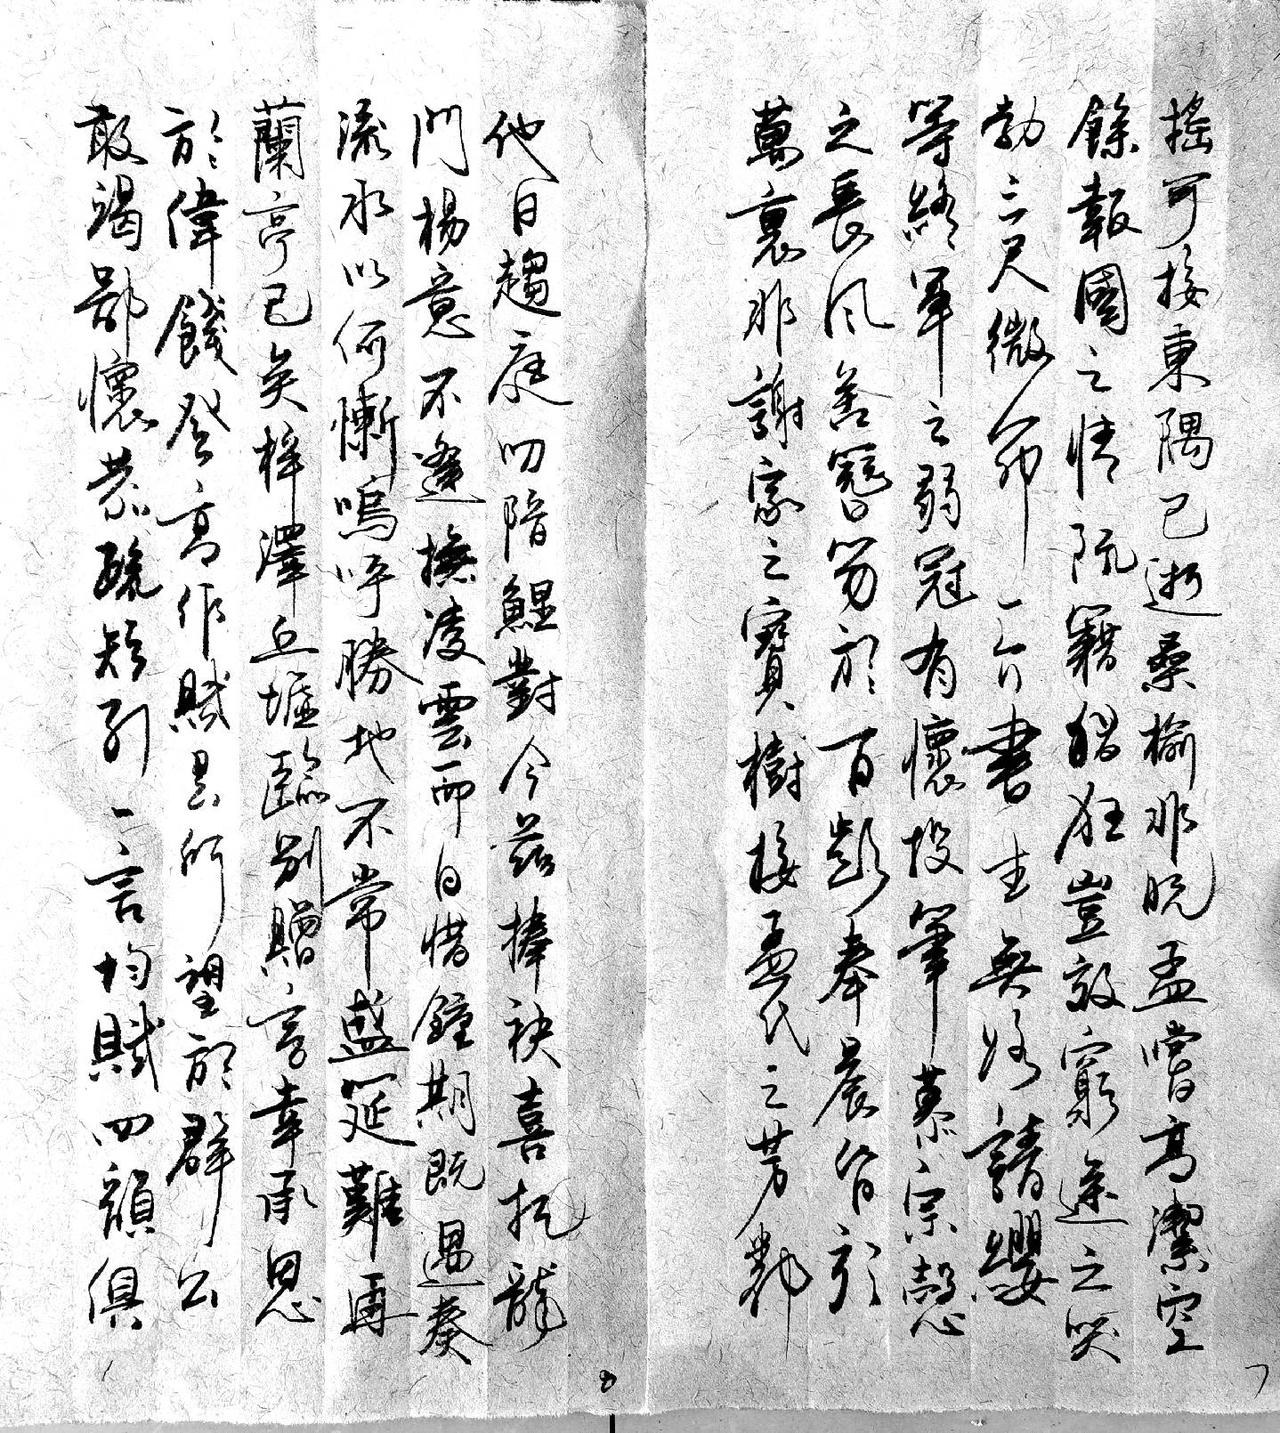 搖可接東隅已逝桑榆非晚孟嘗高潔空
餘報國之情阮籍猖狂豈效窮途之哭
勃三尺微命一介書生無路請纓
等終軍之弱冠有懷投筆慕宗愨
之長風舍簪笏於百齡奉晨昏引
萬裏非謝家之寶樹接孟氏之芳鄰
他日趨庭叨陪鯉對今茲捧袂喜托龍
門楊意不逢撫淩雲而自惜鐘期既遇奏
流水以何慚嗚呼勝地不常盛筵難再
蘭亭已矣梓澤丘墟臨別贈言幸承恩
於偉餞登高作賦是所望於群公
敢竭鄙懷恭疏短引一言均賦四韻俱
7
8